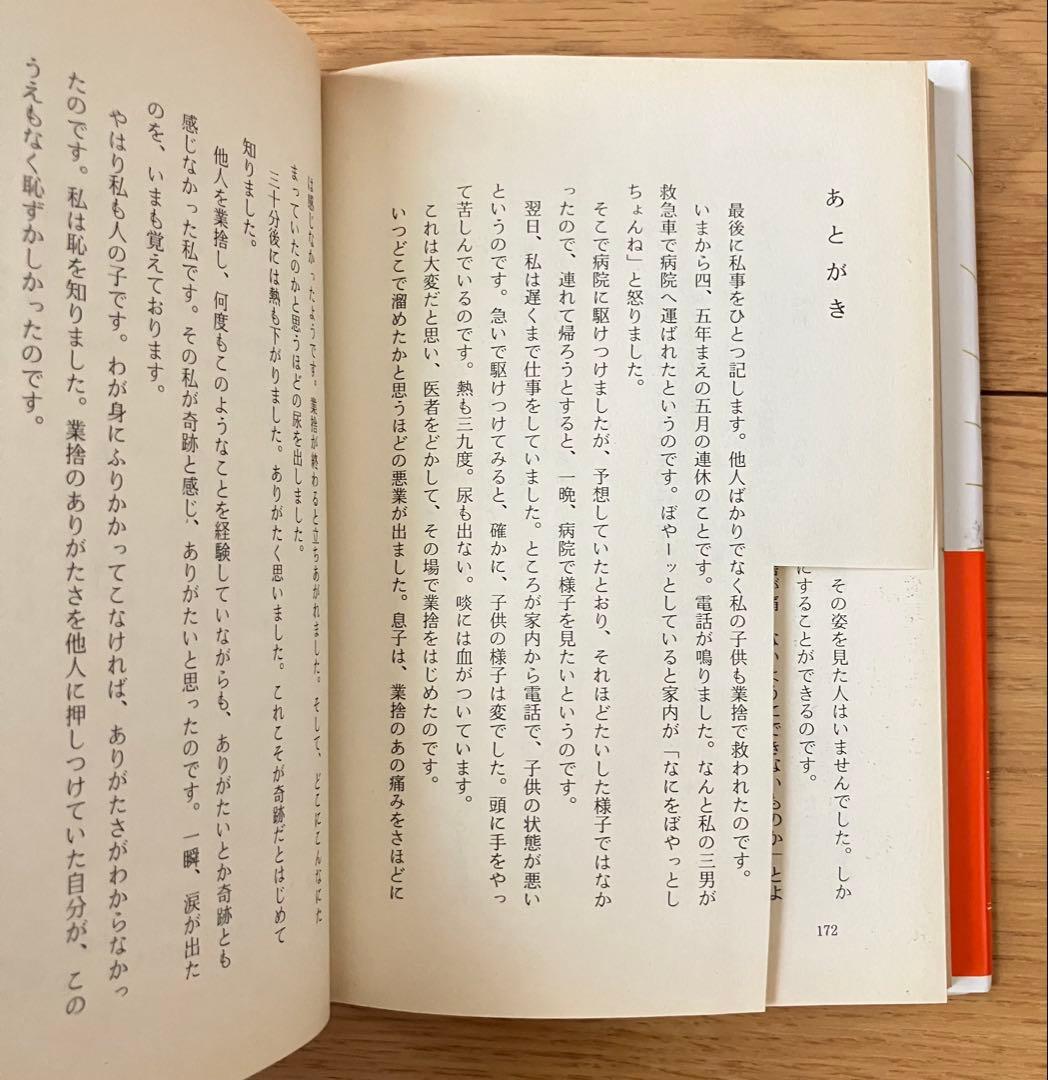 あとがき
最後に私事をひとつ記します。他人ばかりでなく私の子供も業捨で救われたのです。
いまから四、五年まえの五月の連休のことです。電話が鳴りました。なんと私の三男が
救急車で病院へ運ばれたというのです。ぼやーッとしていると家内が「なにをぼやっとし
ちょんね」と怒りました。
そこで病院に駆けつけましたが、予想していたとおり、それほどたいした様子ではなか
ったので、連れて帰ろうとすると、一晩、病院で様子を見たいというのです。
翌日、私は遅くまで仕事をしていました。ところが家内から電話で、子供の状態が悪い
というのです。急いで駆けつけてみると、確かに、子供の様子は変でした。頭に手をやっ
て苦しんでいるのです。熱も三九度。尿も出ない。啖には血がついています。
これは大変だと思い、医者をどかして、その場で業捨をはじめたのです。
いつどこで溜めたかと思うほどの悪業が出ました。息子は、業捨のあの痛みをさほどに
は感じなかったようです。業捨が終わると立ちあがれました。そして、どこにこんなにた
まっていたのかと思うほどの尿を出しました。
三十分後には熱も下がりました。ありがたく思いました。これこそが奇跡だとはじめて
知りました。
他人を業捨し、何度もこのようなことを経験していながらも、ありがたいとか奇跡とも
感じなかった私です。その私が奇跡と感じ、ありがたいと思ったのです。一瞬、涙が出た
のを、いまも覚えております。
やはり私も人の子です。わが身にふりかかってこなければ、ありがたさがわからなかっ
たのです。私は恥を知りました。業捨のありがたさを他人に押しつけていた自分が、この
うえもなく恥ずかしかったのです。
その姿を見た人はいませんでした。しか
にすることができるのです。
ないようにできないものか」とよ
172